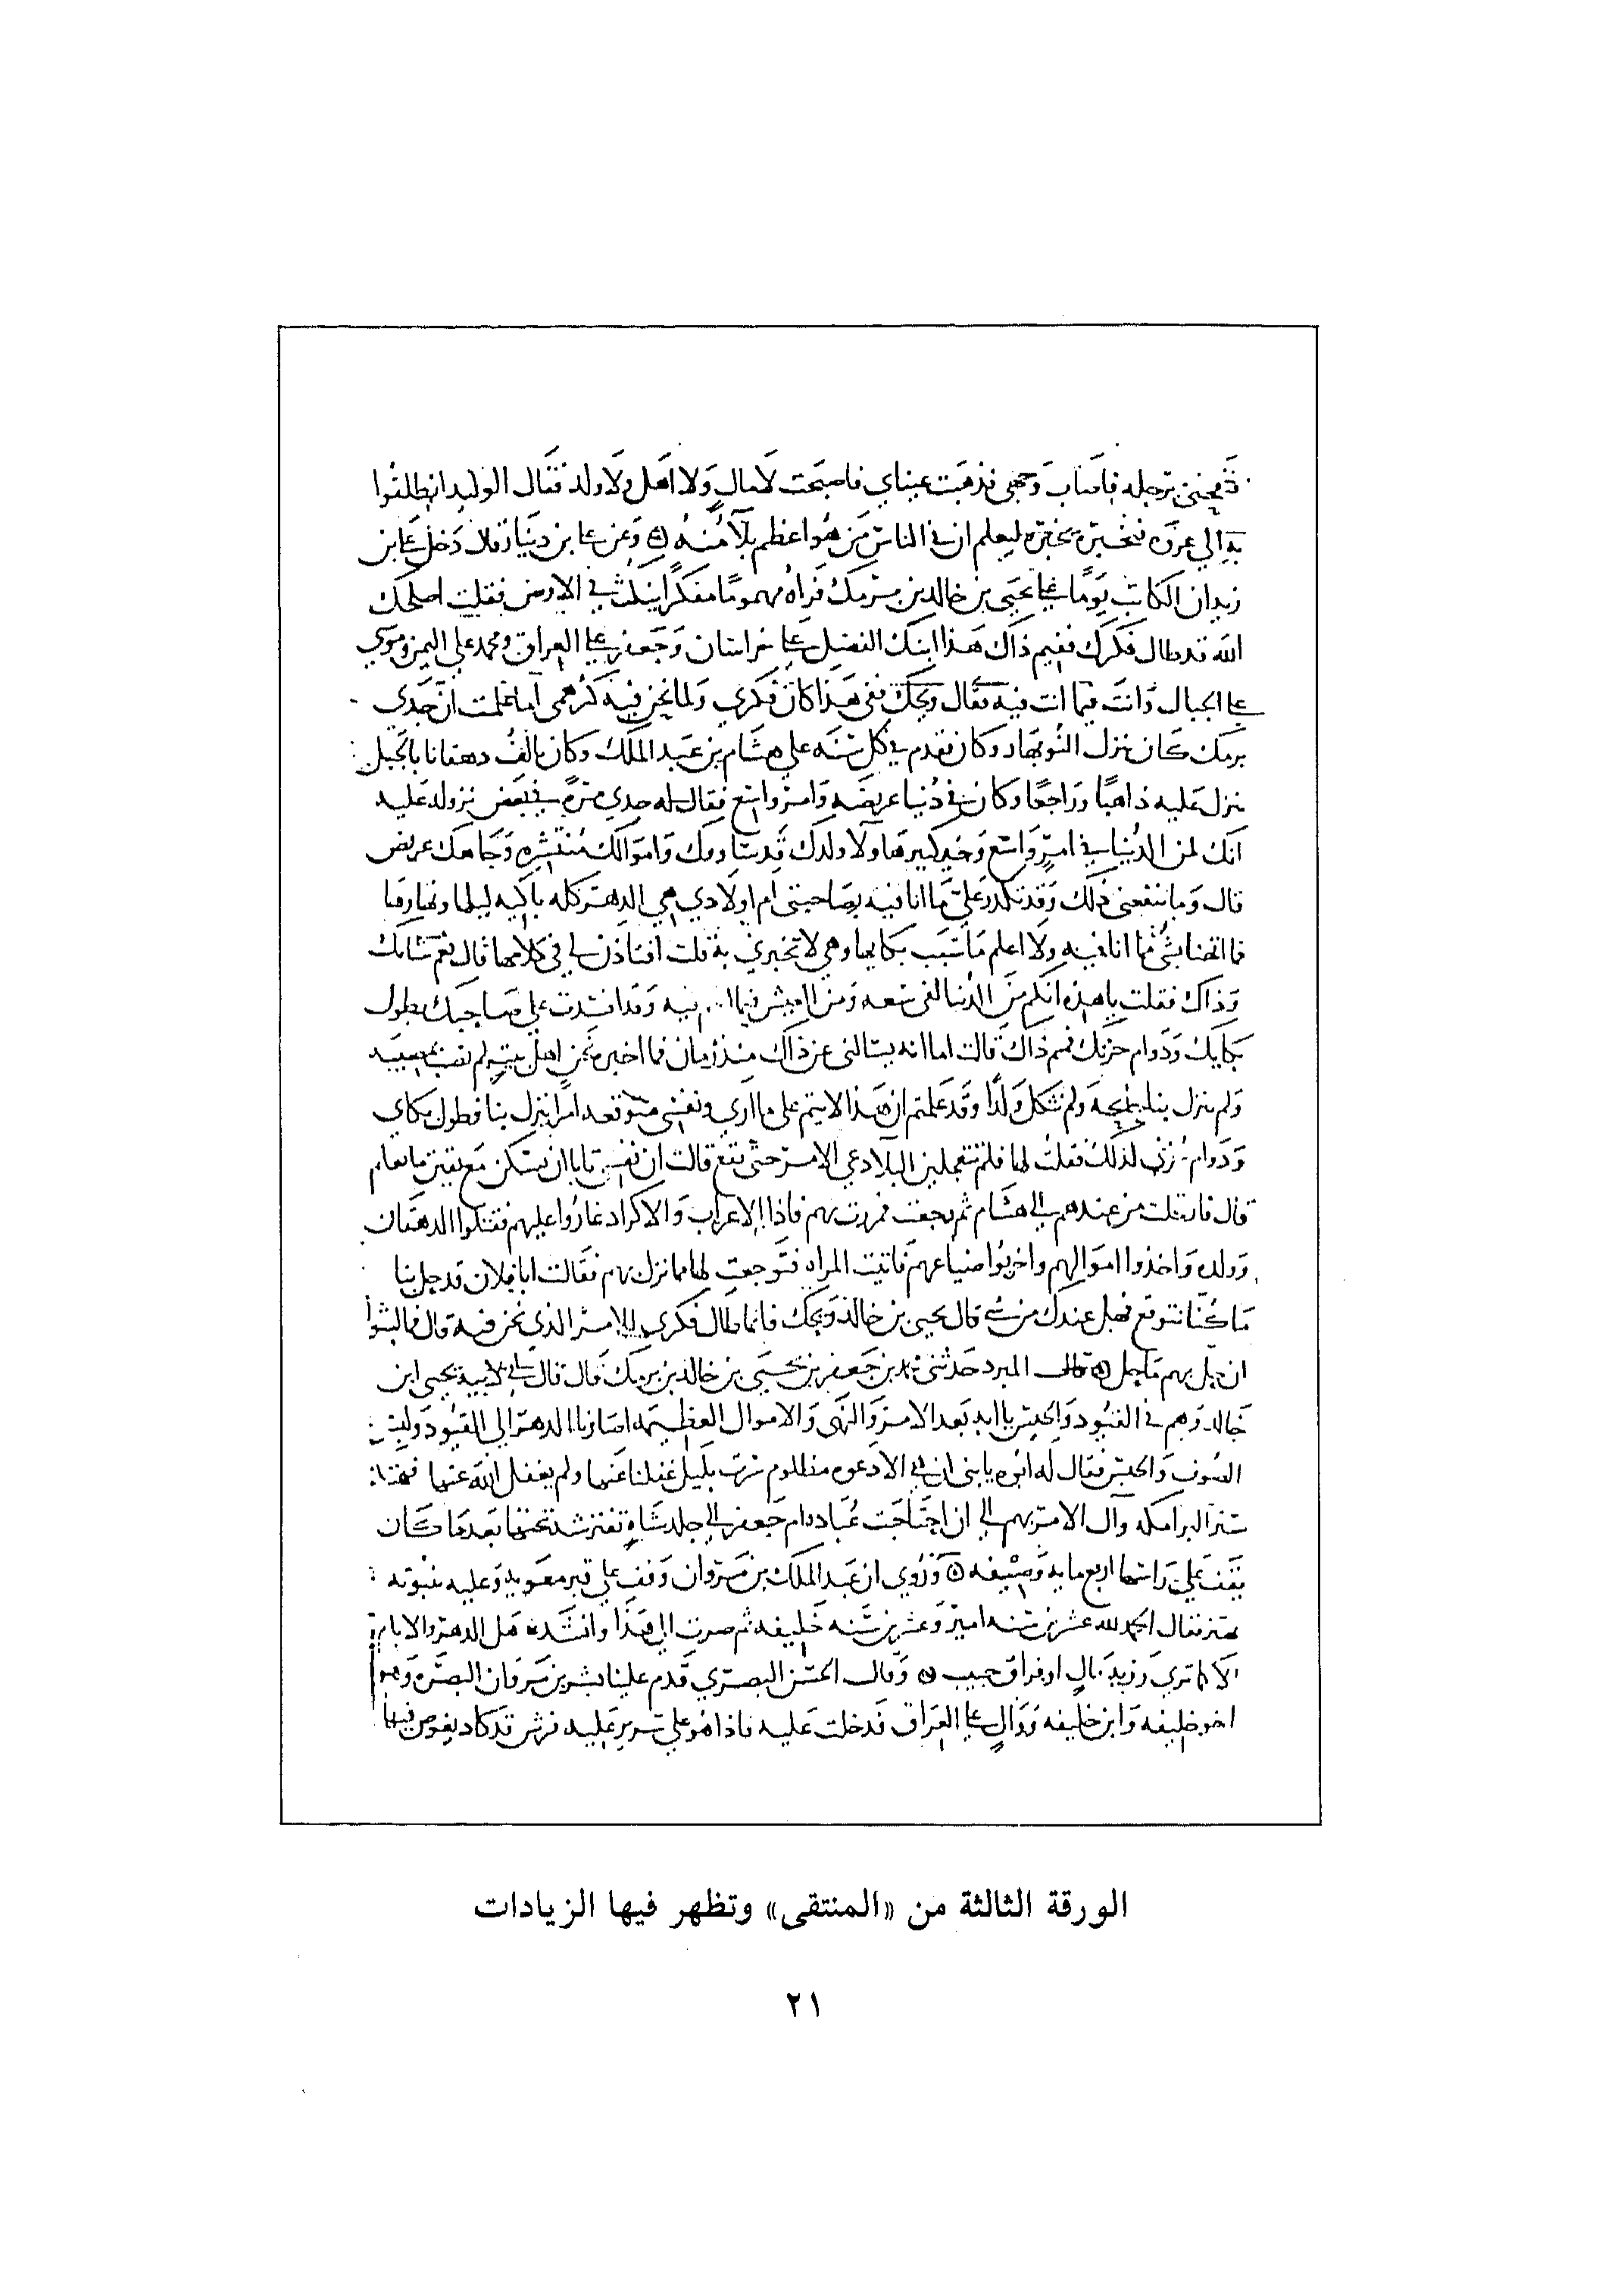 برجله فاصاب وجهي فذهبت عيناي فاصبحت لا مال ولا اهل ولا ولد فقال الوليد انطلقوا
به الي عروه ليعلم ان في الناس من هو اعظم بلا منه وعن علي بن دينار قال دخل علي ابن
زيدان الكاتب يوما علي يحيي بن خالد بن برمك فراه مهموما مفكرا ينكث في الارض فقلت اصلحك
الله قد طال فكرك ففيم ذاك هذا ابنك الفضل علي خراسان وجعفر علي العراق ومحمد علي اليمن وموسي
علي الجبال وانت فيما انت فيه فقال ويحك ففي هذا كان فكري ولما نحن فيه كثر همي اما علمت ان جدي
برمك كان ينزل النوبهار وكان يقدم في كل سنه علي هشام بن عبد الملك وكان يالف دهقانا بالجبل
ينزل عليه ذاهبا وراجعا وكان في دنيا عريضه وامر واسع فقال له جدي مره في بعض نزوله عليه
انك لمن الدنيا في امر واسع وخير كثير هاولا ولدك قد ساووك واموالك منتشره وجاهك عريض
قال وما ينفعني ذلك وقد تكدر علي ما انا فيه بصاحبتي ام اولادي هي الدهر كله باكيه ليلها ونهارها
بشي مما انا فيه ولا اعلم ما سبب بكايها وهي لا تخبرني به قلت افتاذن لي في كلامها قال نعم شانك
وذاك فقلت يا هذه انكم من الدنيا لفي سعه ومن العيش فيما فيه وقد افسدت علي صاحبك بطول
بكايك ودوام حزنك فمم ذاك قالت اما انه يسالني عن ذاك منذ زمان فما اخبره نحن اهل بيت لم نصب بمصيبه
ولم ينزل بنا جايحه ولم نثكل ولدا وقد علمتم ان هذا لا يتم علي ما اري ونفسي متوقعه امرا ينزل بنا فطول بكاي
ودوام حزني لذلك فقلت لها فلم تتعجلين البلا دعي الامر حتي يقع قالت ان نفسي تابا ان تسكن مع يقين ما تعلم
قال فارتحلت من عندهم الي هشام ثم رجعت فمررت بهم فاذا الاعراب والاكراد غاروا عليهم فقتلوا الدهقان
وولده واخذوا اموالهم واخربوا ضياعهم فاتيت المراه فتوجعت لها مما نزل بهم فقالت ابا فلان قد حل بنا
ما كنا نتوقع فهل عندك من شي قال يحيي بن خالد ويحك فانما طال فكري للامر الذي نحن فيه قال فما لبثوا
ان حل بهم ما حل قال المبرد حدثني محمد بن جعفر بن يحيي بن خالد بن برمك قال قال ابي لابيه يحيي ابن
خالد وهم في القيود والحبس يا ابه بعد الامر والنهي والاموال العظيمه اصارنا الدهر الي القيود ولبس
الصوف والحبس فقال له ابوه يا بني دعوه مظلوم سرت بليل غفلنا عنها ولم يغفل الله عنها
البرامكه وال الامر بهم الي ان احتاجت عباده ام جعفر الي جلد شاه تفترشه تحتها بعد ما كان
يقف علي راسها اربع مايه وصيفه وروي ان عبد الملك بن مروان وقف علي قبر معويه وعليه
فقال الحمد لله عشرين سنه امير وعشرين سنه خليفه ثم صرت الي هذا وانشده هل الدهر والايام
الا كما تري رزيه مال او فراق حبيب وقال الحسن البصري قدم علينا بشر بن مروان البصره وهو
اخو خليفه وابن خليفه ووال علي العراق فدخلت عليه فاذا هو علي سرير عليه فرش قد كاد يغوص فيها
الورقة الثالثة من «المنتقى» وتظهر فيها الزيادات
٢١